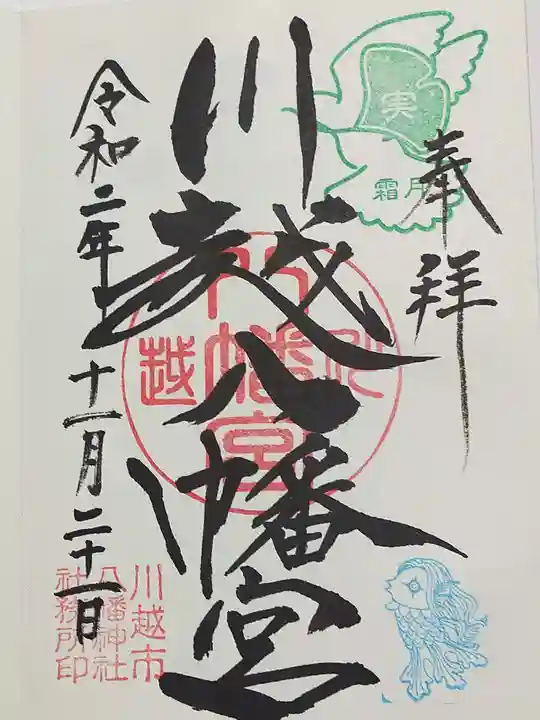 奉拝
実
霜月
川越八幡宮
川越
八幡宮
令和二年十一月二十一日
川越市
八幡神社
社務所印